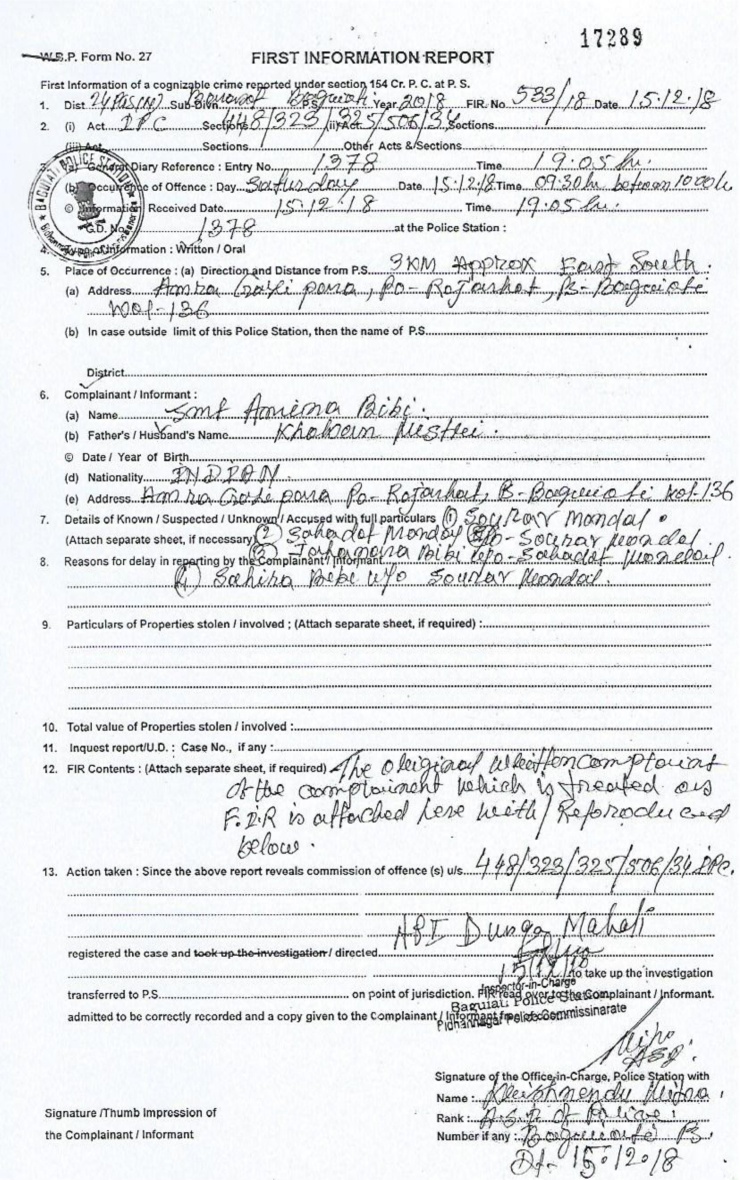 17289
W.B.P. Form No. 27
FIRST INFORMATION REPORT
First Information of a cognizable crime reported under section 154 Cr. P. C. at P. S.
1. Dist 24 Pgs(N) Sub-Divn. Barasat P.S. Baguiati Year 2018 FIR. No. 533/18 Date 15.12.18
2. (i) Act. IPC Sections 448/323/325/506/34 (ii) Act Sections
(iii) Act Sections Other Acts & Sections
3. (a) General Diary Reference : Entry No. 1378 Time 19.05 hr.
(b) Occurrence of Offence : Day Saturday Date 15.12.18 Time 09:30 hr between 10:00 h
© Information Received Date 15.12.18 Time 19.05 hr.
G.D. No. 1378 at the Police Station :
4. Type of Information : Written / Oral
5. Place of Occurrence : (a) Direction and Distance from P.S. 3KM Approx East South.
(a) Address Amra Gazi para, Po- Rajarhat, PS- Baguiati
Kol-136
(b) In case outside limit of this Police Station, then the name of P.S.
District
6. Complainant / Informant :
(a) Name Smt Amiena Bibi.
(b) Father's / Husband's Name
© Date / Year of Birth
(d) Nationality INDIAN
(e) Address Amra Gazi para Po- Rajarhat, PS- Baguiati Kol-136
7. Details of Known / Suspected / Unknown / Accused with full particulars (1) Sourav Mondal.
(Attach separate sheet, if necessary) (2) Sahadat Mondal S/o- Sourav Mondal
8. Reasons for delay in reporting by the Complainant / Informant (3) Jahanara Bibi W/o- Sahadat Mondal.
(4) Sahina Bibi W/o Sourav Mondal.
9. Particulars of Properties stolen / involved ; (Attach separate sheet, if required) :
10. Total value of Properties stolen / involved :
11. Inquest report/U.D. : Case No., if any :
12. FIR Contents : (Attach separate sheet, if required) The original written complaint
of the complainent which is treated as
F.I.R is attached here with/Reproduced
below.
13. Action taken : Since the above report reveals commission of offence (s) u/s 448/323/325/506/34 IPC.
ASI Durga Mahali
registered the case and took up the investigation / directed
15/12/18 to take up the investigation
Inspector-in-Charge
transferred to P.S. on point of jurisdiction. FIR read over to the Complainant / Informant.
Baguiati Police Station
admitted to be correctly recorded and a copy given to the Complainant / Informant free of cost
Bidhannagar Police Commissinarate
ASI.
Signature of the Office-in-Charge, Police Station with
Name : Krishnendu Mitra
Signature /Thumb Impression of
Rank : A.S.I of Police.
the Complainant / Informant
Number if any : Baguiati PS.
Dt- 15.12.18
BAGUIATI POLICE STATION